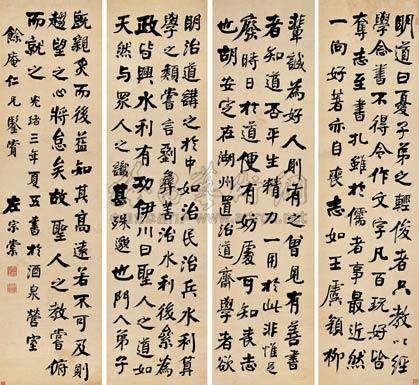 明道曰憂子弟之輕俊者只教以經
學念書不得令作文字凡百玩好皆
奪志至書札雖於儒者事最近然
一向好著亦自喪志如王虞顏柳
輩誠為好人則有之曾見有善書
者知道否平生精力一用於此非惟徒
廢時日於道便有妨處可知喪志
也胡安定在湖州置治道齋學者欲
明治道講之於中如治民治兵水利算
學之類嘗言劉彝治水利後累為
政皆興水利有功伊川曰聖人之道如
天然与眾人之識甚殊邈也門人弟子
既親炙而後益知其高遠若不可及則
趨望之心將怠矣故聖人之教嘗俯
而就之 光緒三年夏五書於酒泉營室
餘庵仁兄鑒賞 左宗棠